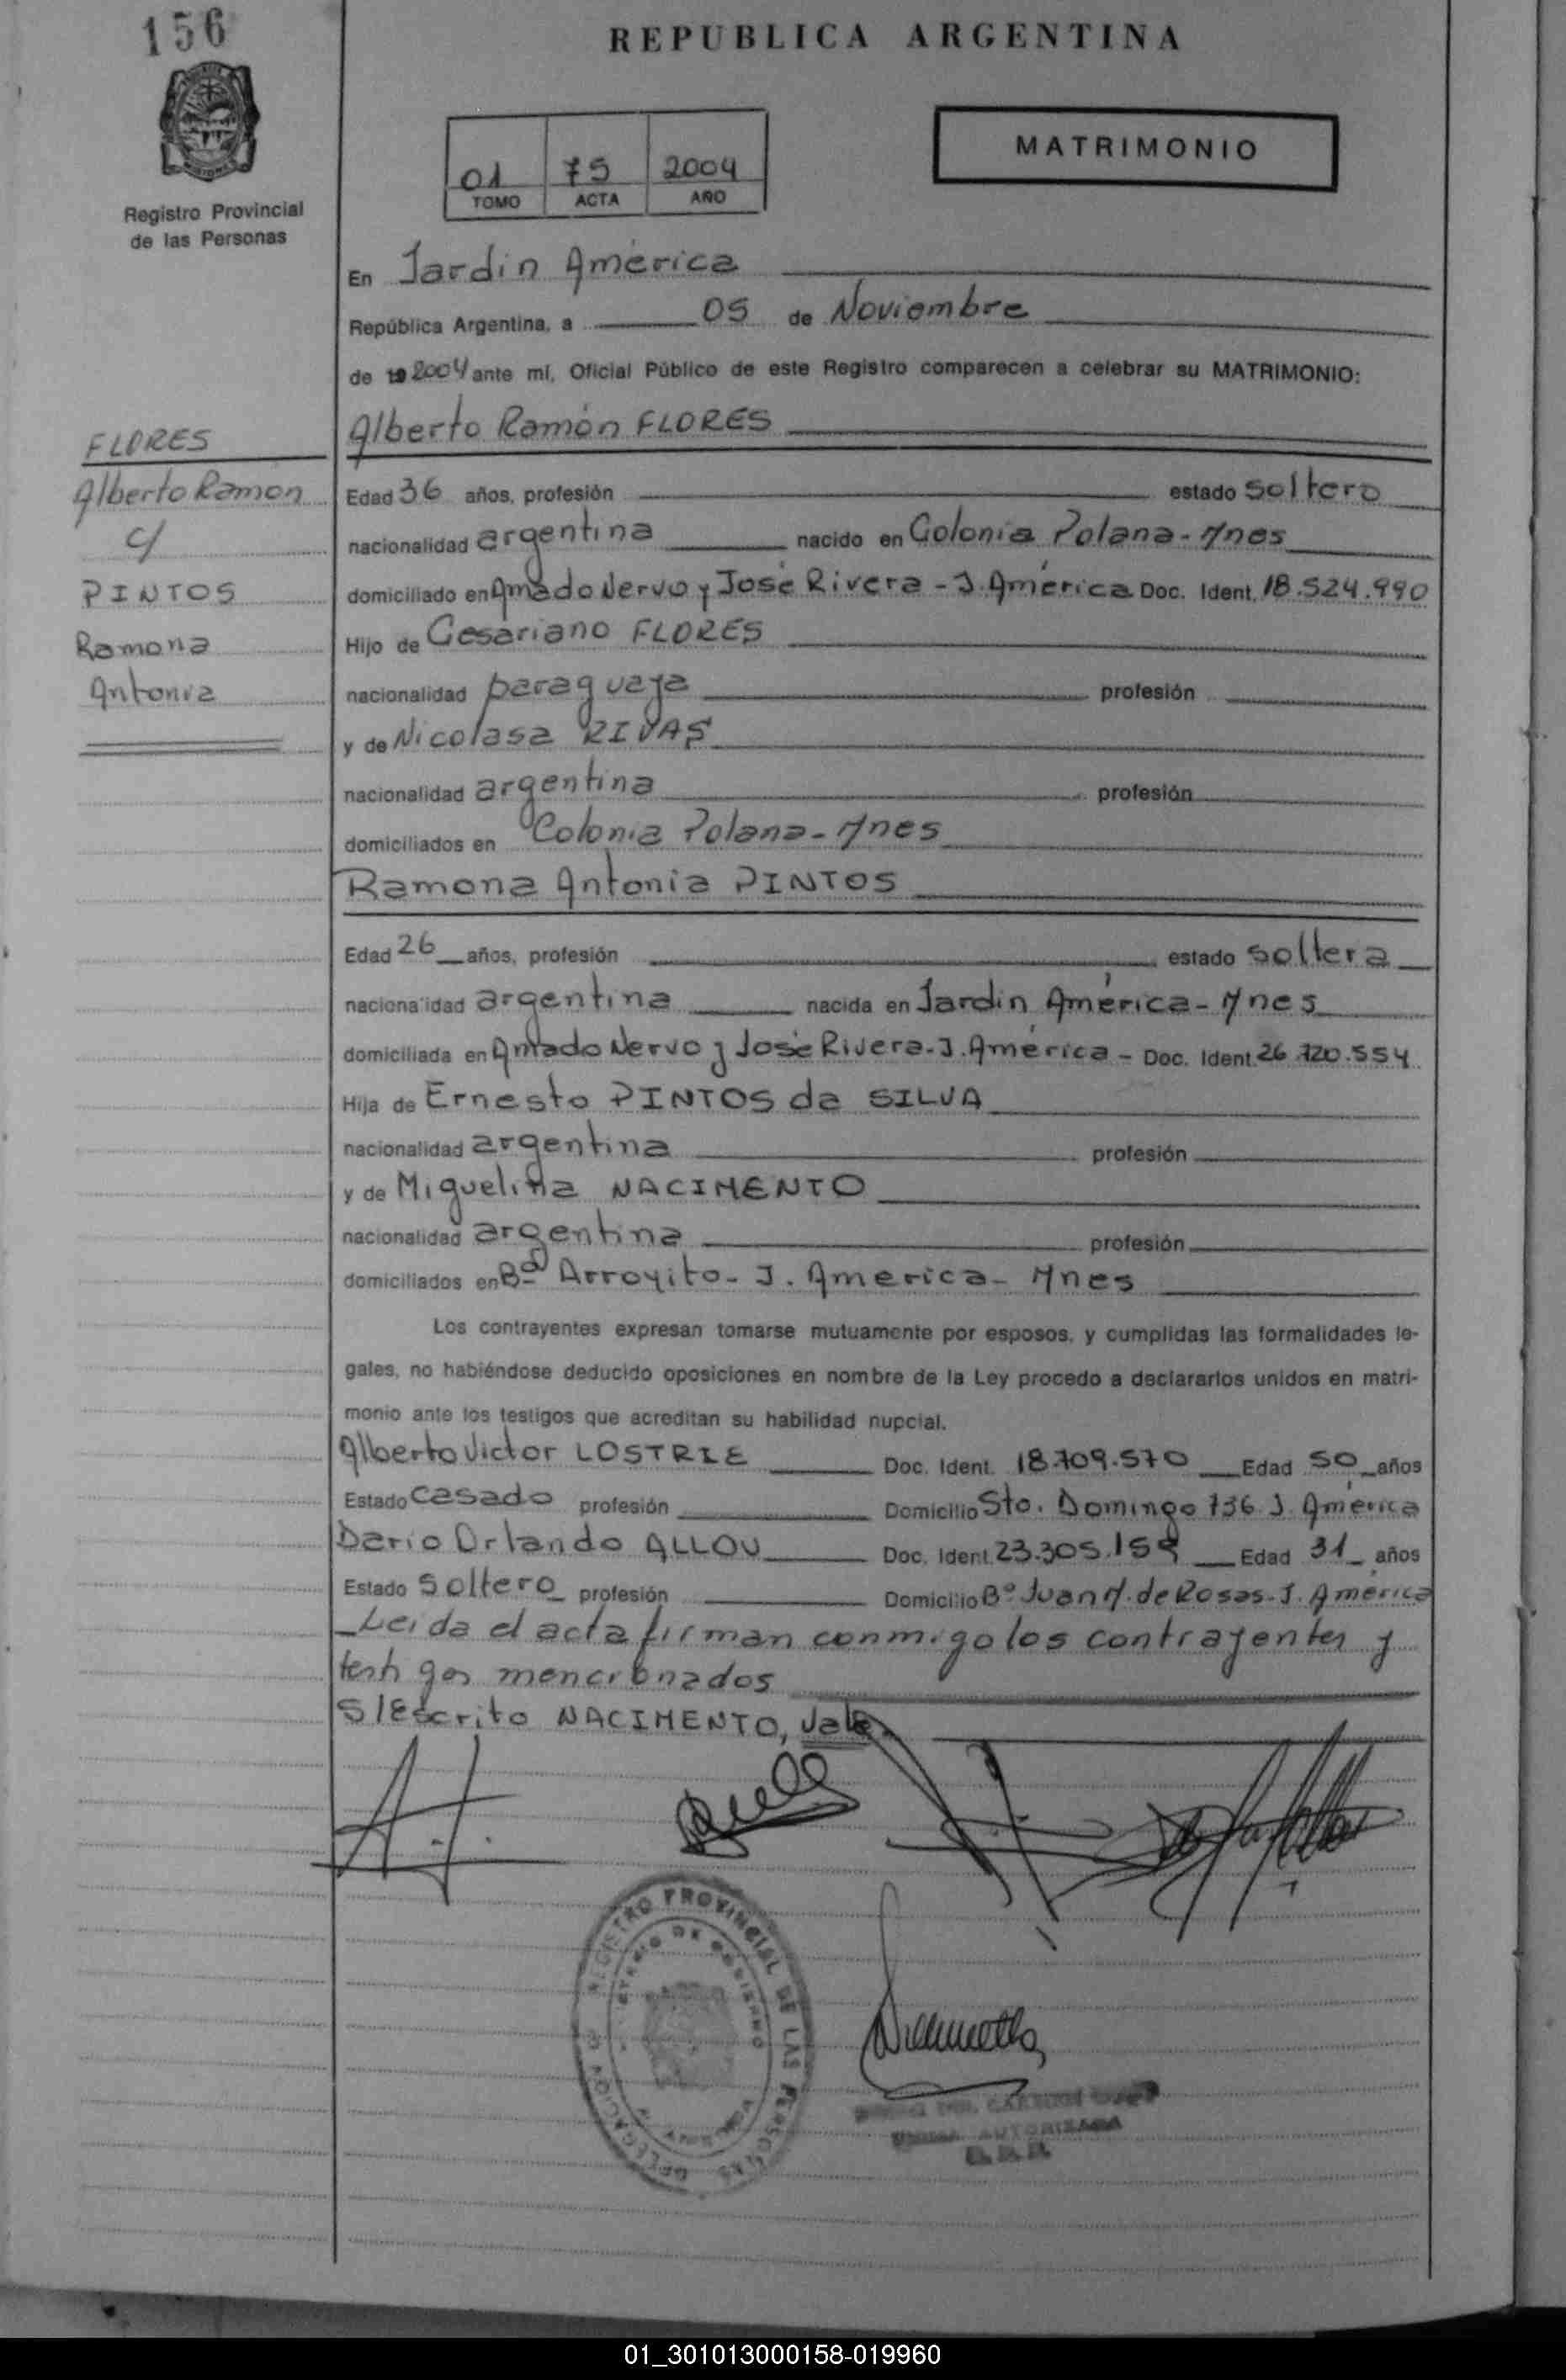 156
REPUBLICA ARGENTINA
MATRIMONIO
01 75 2004
TOMO ACTA AÑO
Registro Provincial
de las Personas
En Jardín América
República Argentina, a 05 de Noviembre
de 19 2004 ante mí, Oficial Público de este Registro comparecen a celebrar su MATRIMONIO:
FLORES
Alberto Ramon
c/
PINTOS
Ramona
Antonia
Alberto Ramón FLORES
Edad 36 años, profesión estado soltero
nacionalidad argentina nacido en Colonia Polana - Mnes
domiciliado en Amado Nervo y José Rivera - J. América Doc. Ident. 18.524.990
Hijo de Cesariano FLORES
nacionalidad paraguaya profesión
y de Nicolasa RIVAS
nacionalidad argentina profesión
domiciliados en Colonia Polana - Mnes
Ramona Antonia PINTOS
Edad 26 años, profesión estado soltera
nacionalidad argentina nacida en Jardín América - Mnes
domiciliada en Amado Nervo y José Rivera - J. América - Doc. Ident. 26.720.554
Hija de Ernesto PINTOS da SILVA
nacionalidad argentina profesión
y de Miguelina NACIMENTO
nacionalidad argentina profesión
domiciliados en Bº Arroyito - J. America - Mnes
Los contrayentes expresan tomarse mutuamente por esposos, y cumplidas las formalidades le-
gales, no habiéndose deducido oposiciones en nombre de la Ley procedo a declararlos unidos en matri-
monio ante los testigos que acreditan su habilidad nupcial.
Alberto Victor LOSTRIE Doc. Ident. 18.709.570 Edad 50 años
Estado casado profesión Domicilio Sto. Domingo 736 J. América
Dario Orlando ALLOU Doc. Ident. 23.305.159 Edad 31 años
Estado soltero profesión Domicilio Bº Juan M. de Rosas - J. América
Leida el acta firman conmigo los contrayentes y
testigos mencionados
S/Escrito NACIMENTO, Vale.
REGISTRO PROVINCIAL DE LAS PERSONAS
DELEGACION
DE GOBIERNO
DEL CARMEN
FIRMA AUTORIZADA
01_301013000158-019960